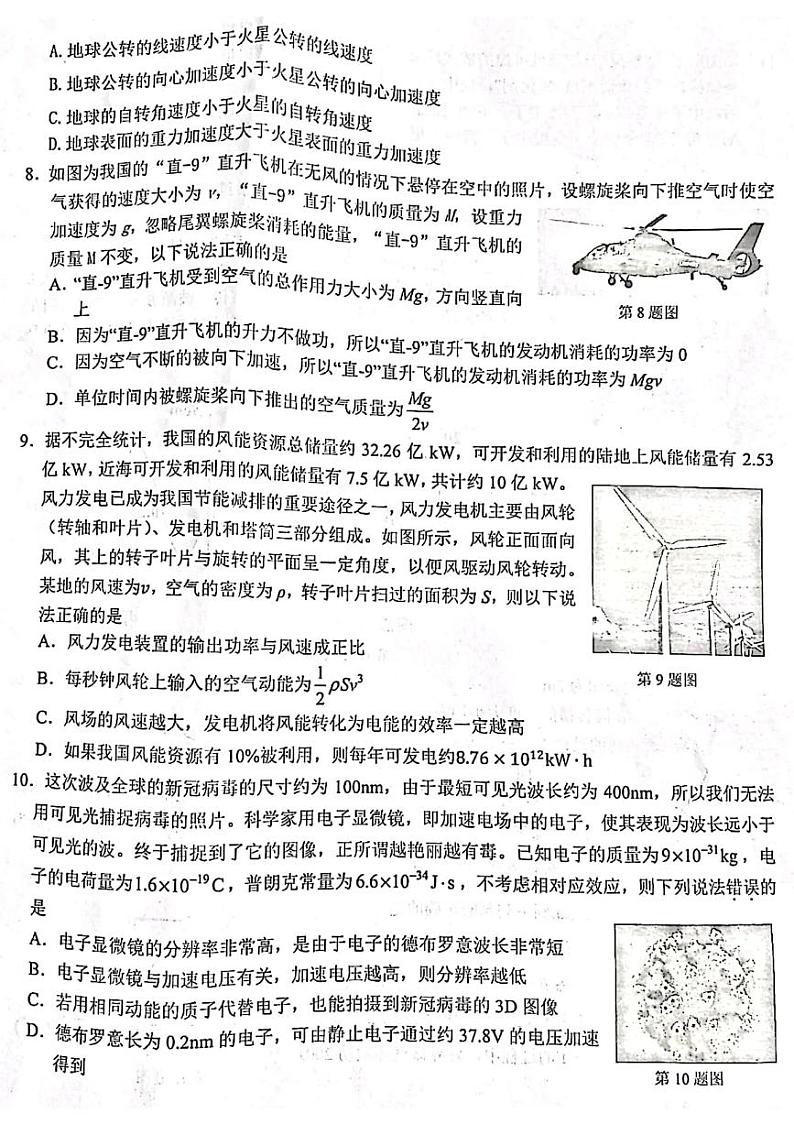 A. 地球公转的线速度小于火星公转的线速度
B. 地球公转的向心加速度小于火星公转的向心加速度
C. 地球的自转角速度小于火星的自转角速度
D. 地球表面的重力加速度大于火星表面的重力加速度
8. 如图为我国的“直-9”直升飞机在无风的情况下悬停在空中的照片，设螺旋桨向下推空气时使空
气获得的速度大小为 v，“直-9”直升飞机的质量为 M，设重力
加速度为 g，忽略尾翼螺旋桨消耗的能量，“直-9”直升飞机的
质量 M 不变，以下说法正确的是
A. “直-9”直升飞机受到空气的总作用力大小为 Mg，方向竖直向
上
第 8 题图
B. 因为“直-9”直升飞机的升力不做功，所以“直-9”直升飞机的发动机消耗的功率为 0
C. 因为空气不断的被向下加速，所以“直-9”直升飞机的发动机消耗的功率为 Mgv
D. 单位时间内被螺旋桨向下推出的空气质量为 Mg/2v
9. 据不完全统计，我国的风能资源总储量约 32.26 亿 kW，可开发和利用的陆地上风能储量有 2.53
亿 kW，近海可开发和利用的风能储量有 7.5 亿 kW，共计约 10 亿 kW。
风力发电已成为我国节能减排的重要途径之一，风力发电机主要由风轮
（转轴和叶片）、发电机和塔筒三部分组成。如图所示，风轮正面面向
风，其上的转子叶片与旋转的平面呈一定角度，以便风驱动风轮转动。
某地的风速为v，空气的密度为 ρ，转子叶片扫过的面积为 S，则以下说
法正确的是
A. 风力发电装置的输出功率与风速成正比
B. 每秒钟风轮上输入的空气动能为 1/2 ρSv³
第 9 题图
C. 风场的风速越大，发电机将风能转化为电能的效率一定越高
D. 如果我国风能资源有 10%被利用，则每年可发电约8.76 × 10¹²kW · h
10. 这次波及全球的新冠病毒的尺寸约为 100nm，由于最短可见光波长约为 400nm，所以我们无法
用可见光捕捉病毒的照片。科学家用电子显微镜，即加速电场中的电子，使其表现为波长远小于
可见光的波。终于捕捉到了它的图像，正所谓越艳丽越有毒。已知电子的质量为9×10⁻³¹kg，电
子的电荷量为1.6×10⁻¹⁹C，普朗克常量为6.6×10⁻³⁴J·s，不考虑相对应效应，则下列说法错误的
是
A. 电子显微镜的分辨率非常高，是由于电子的德布罗意波长非常短
B. 电子显微镜与加速电压有关，加速电压越高，则分辨率越低
C. 若用相同动能的质子代替电子，也能拍摄到新冠病毒的 3D 图像
D. 德布罗意长为 0.2nm 的电子，可由静止电子通过约 37.8V 的电压加速
得到
第 10 题图